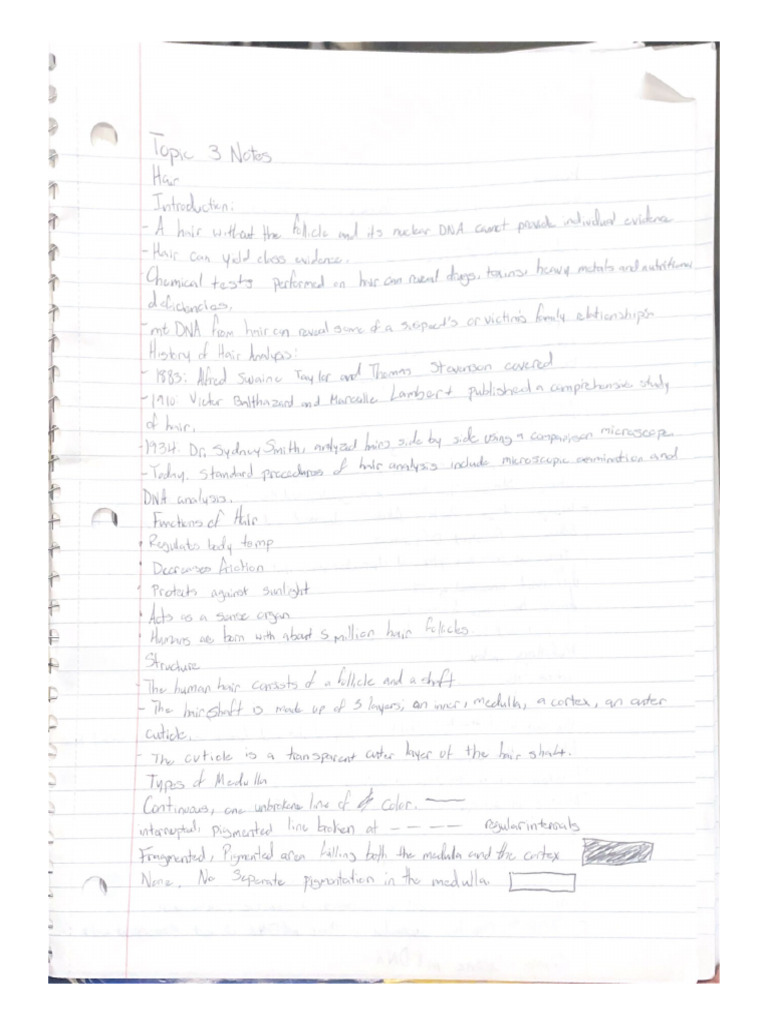 Topic 3 Notes
Hair
Introduction:
- A hair without the follicle and its nuclear DNA cannot provide individual evidence
- Hair can yield class evidence.
Chemical tests performed on hair can reveal drugs, toxins, heavy metals and nutritional
deficiencies.
- mt DNA from hair can reveal some of a suspect's or victim's family relationships
History of Hair Analysis:
- 1883: Alfred Swaine Taylor and Thomas Stevenson covered
- 1910: Victor Balthazard and Marcelle Lambert published a comprehensive study
of hair.
- 1934: Dr. Sydney Smith, analyzed hairs side by side using a comparison microscope
- Today. Standard procedures of hair analysis include microscopic examination and
DNA analysis.
Functions of Hair
• Regulates body temp
• Decreases friction
• Protects against sunlight
• Acts as a sense organ
• Humans are born with about 5 million hair follicles
Structure
- The human hair consists of a follicle and a shaft
- The hair shaft is made up of 3 layers; an inner, medulla, a cortex, an outer
cuticle.
- The cuticle is a transparent outer layer of the hair shaft.
Types of Medulla
Continuous, one unbroken line of color.
interrupted, pigmented line broken at regular intervals
Fragmented, Pigmented area filling both the medulla and the cortex
None. No Separate pigmentation in the medulla